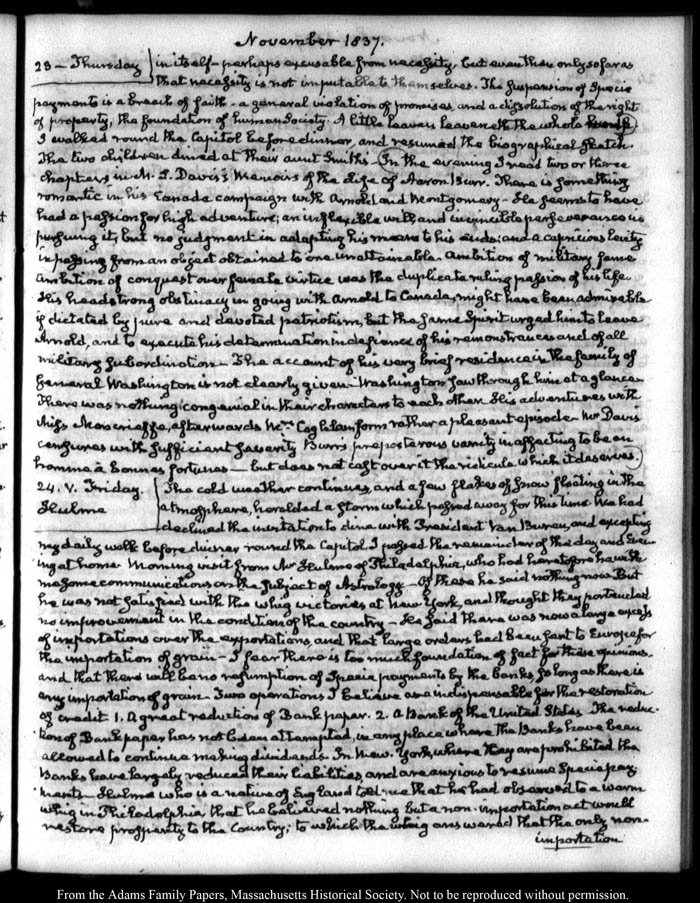 November 1837.
23 - Thursday in itself - perhaps excusable from necessity, but even then only so far as
that necessity is not imputable to themselves. The suspension of specie
payments is a breach of faith - a general violation of promises, and a dissolution of the right
of property, the foundation of human Society. A little leaven leaveneth the whole lump
I walked round the Capitol before dinner, and resumed the biographical sketch.
The two children dined at their aunt Smith's - In the evening I read two or three
chapters in M. L. Davis's Memoirs of the Life of Aaron Burr. There is something
romantic in his Canada campaign with Arnold and Montgomery - He seems to have
had a passion for high adventure; an inflexible will and invincible perseverance in
pursuing it, but no judgment in adapting his means to his ends; and a capricious levity
in passing from an object obtained to one unattainable. Ambition of military fame
ambition of conquest over female virtue was the duplicate ruling passion of his life
His headstrong obstinacy in going with Arnold to Canada, might have been admirable
if dictated by pure and devoted patriotism, but the same Spirit urged him to leave
Arnold, and to execute his determination in defiance of his remonstrances and of all
military subordination - The account of his very brief residence in the family of
General Washington is not clearly given - Washington saw through him at a glance -
There was nothing congenial in their characters to each other. His adventures with
Miss Moncrieffe, afterwards Mrs Coghlan form rather a pleasant episode - Mr Davis
censures with sufficient severity Burr's preposterous vanity in affecting to be an
homme à bonnes fortunes - but does not cast over it the ridicule which it deserves.
24. V. Friday. The cold weather continues, and a few flakes of snow floating in the
Hulme atmosphere, heralded a storm which passed away for this time. We had
declined the invitation to dine with President Van Buren, and excepting
my daily walk before dinner round the Capitol I passed the remainder of the day and Even-
ing at home. Morning visit from Mr Hulme of Philadelphia, who had heretofore had with
me some communications on the subject of Astrology - Of these he said nothing now. But
he was not satisfied with the whig victories at New York, and thought they portended
no improvement in the condition of the country - He said there was now a large excess
of importations over the exportations, and that large orders had been sent to Europe for
the importation of grain - I fear there is too much foundation of fact for these opinions.
and that there will be no resumption of Specie payments by the banks, so long as there is
any importation of grain - Two operations I believe are indispensable for the restoration
of credit 1. A great reduction of Bank paper. 2. A Bank of the United States. The reduc-
tion of Bank paper has not been attempted, in any place where the Banks have been
allowed to continue making dividends. In New York, where they are prohibited the
Banks have largely reduced their liabilities, and are anxious to resume Specie pay
ments - Hulme who is a native of England told me that he had observed to a warm
whig in Philadelphia that he believed nothing but a non-importation act would
restore prosperity to the Country; to which the whig answered that the only non-
importation
From the Adams Family Papers, Massachusetts Historical Society. Not to be reproduced without permission.